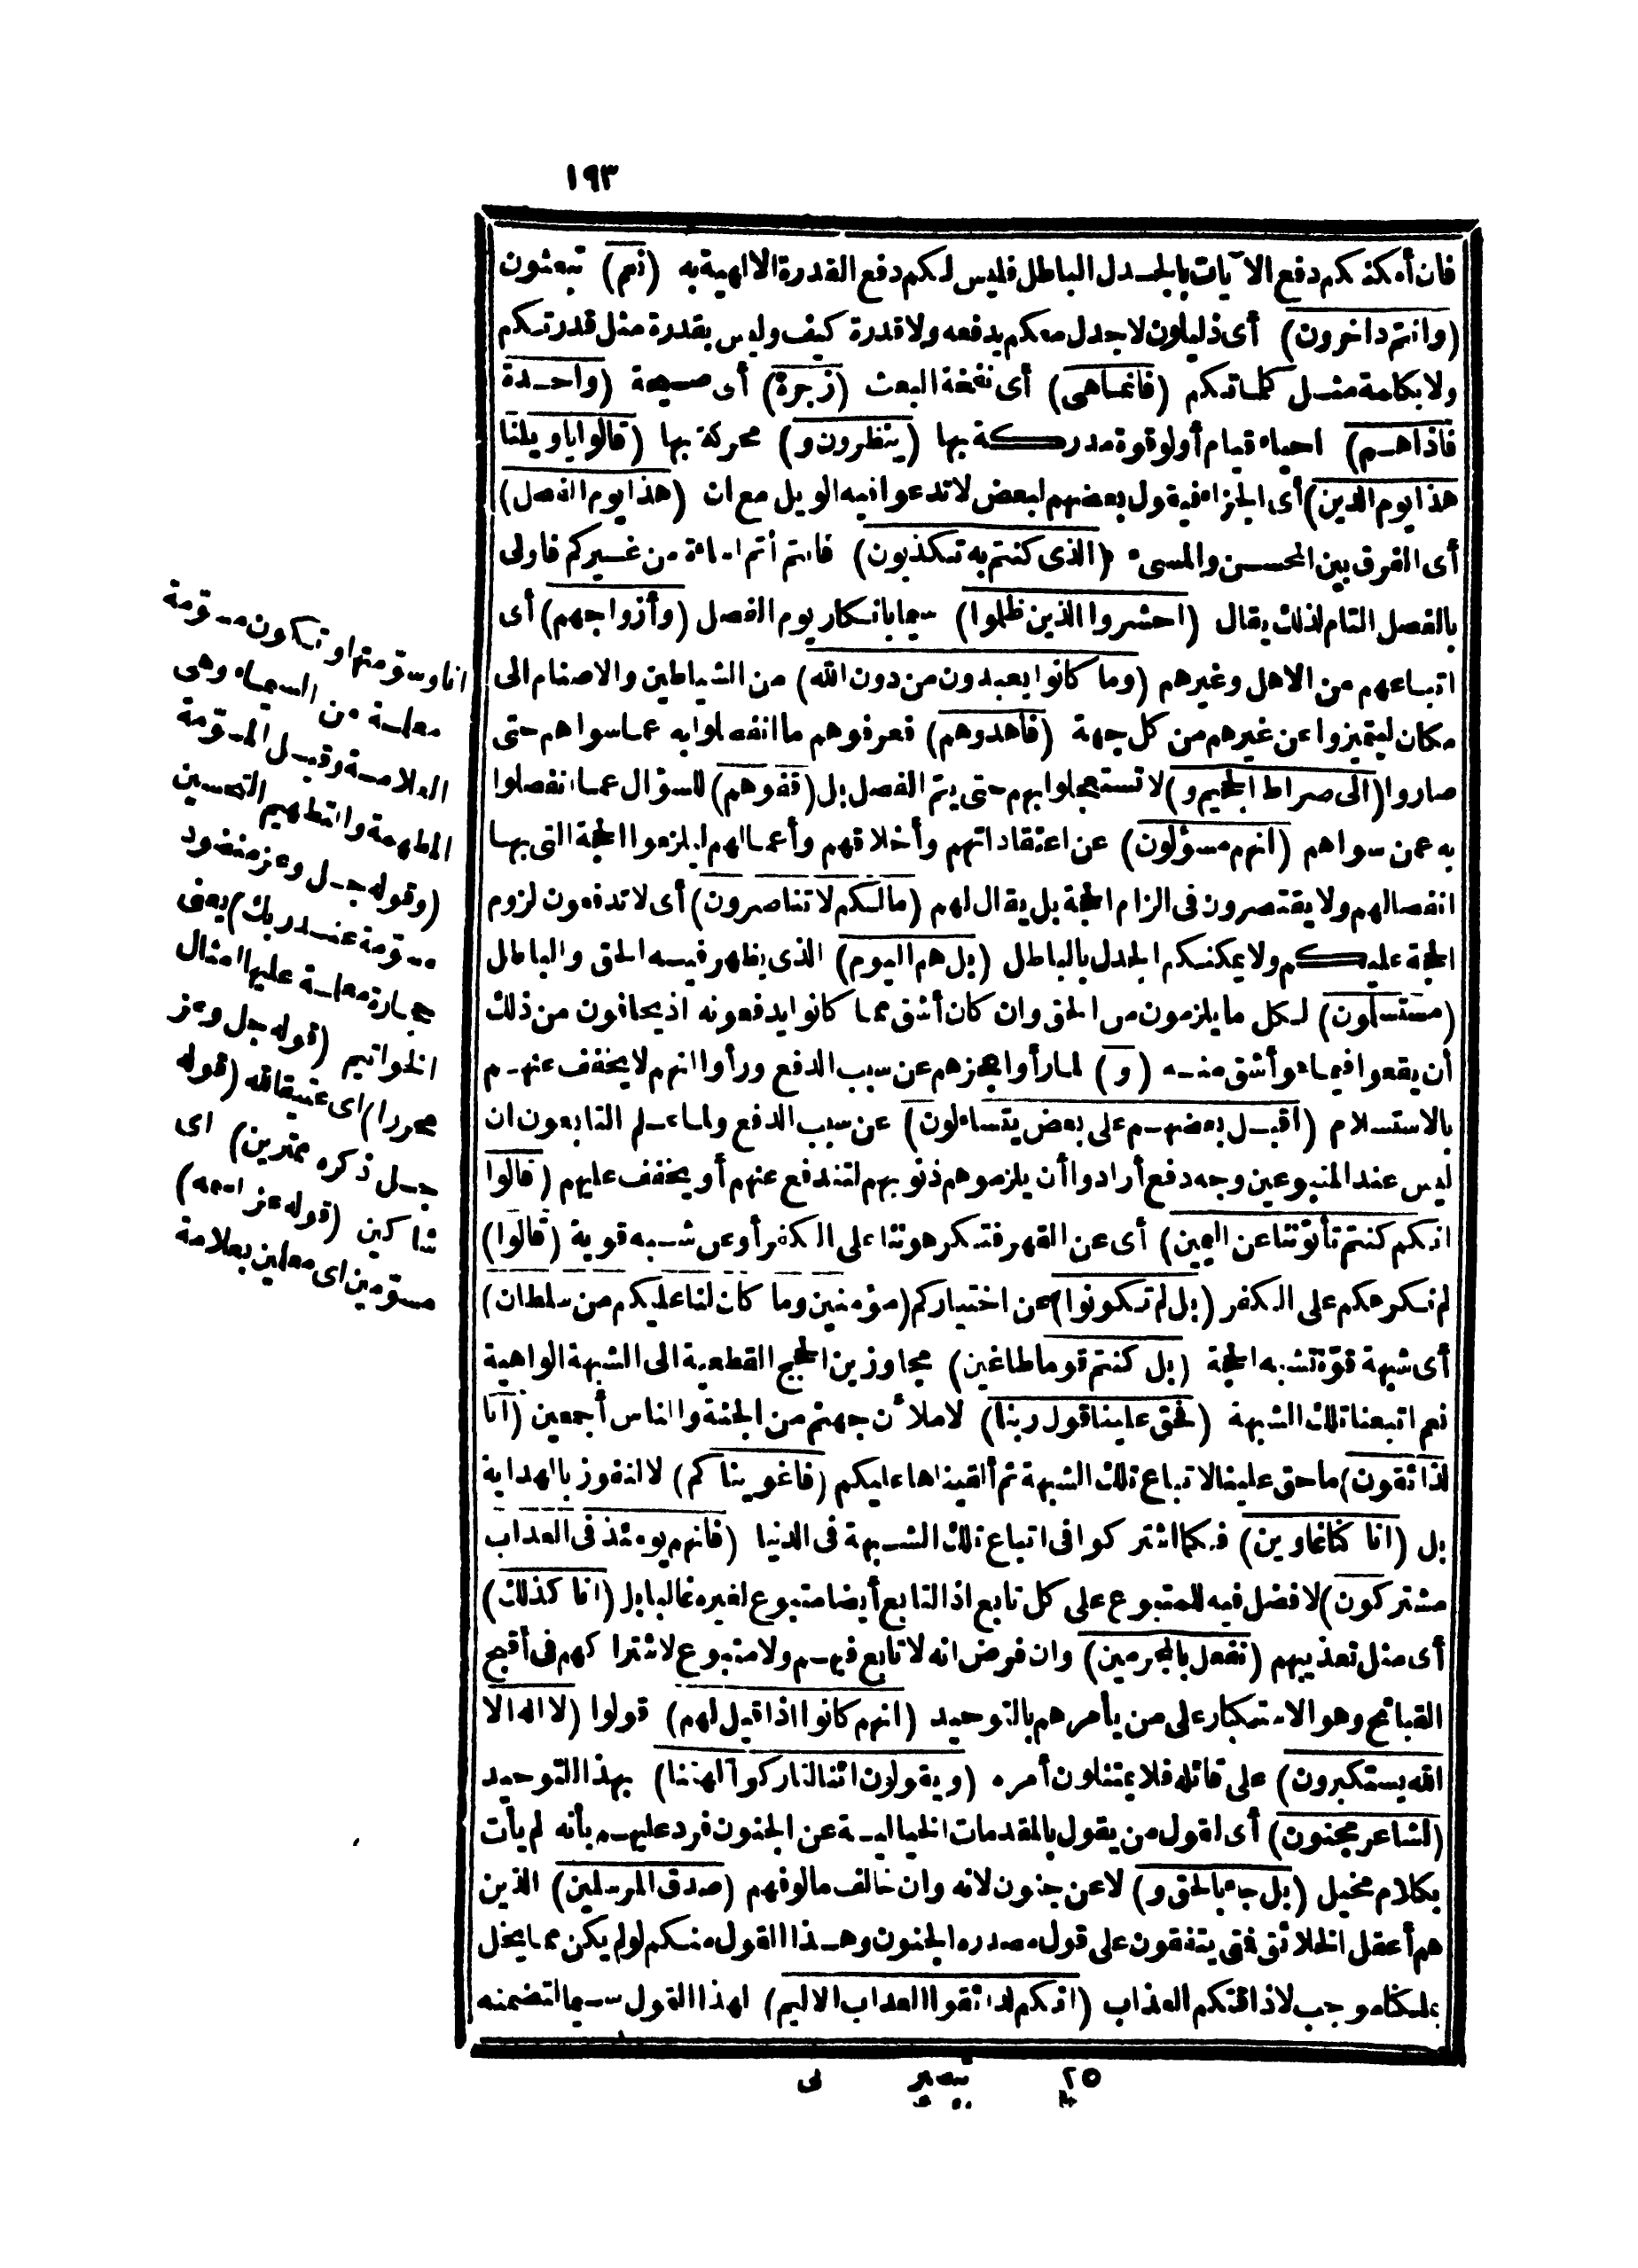 ١٩٣
فان أمكنكم دفع الآيات بالجدل الباطل فليس لكم دفع القدرة الالهية به (نعم) تبعثون
(وانتم داخرون) أى ذليلون لاجدل معكم يدفعه ولا قدرة كيف وليس بقدرة مثل قدرتكم
ولا بكلمة مثل كلماتكم (فانماهى) أى نفخة البعث (زجرة) أى صيحة (واحدة
فاذاهم) احياء قيام أولو قوة مدركة بها (ينظرون و) محركة بها (قالوا ياويلنا
هذا يوم الدين) أى الجزاء فيقول بعضهم لبعض لاتدعوا فيه الويل مع ان (هذا يوم الفصل)
أى الفرق بين المحسن والمسىء (الذى كنتم به تكذبون) فانتم أتم اساءة من غيركم فاولى
بالفصل التام لذلك يقال (احشروا الذين ظلموا) سيما بانكار يوم الفصل (وأزواجهم) أى
اتباعهم من الاهل وغيرهم (وما كانوا يعبدون من دون الله) من الشياطين والاصنام الى
مكان ليتميزوا عن غيرهم من كل جهة (فاهدوهم) فعرفوهم ما انفصلوا به عما سواهم حتى
صاروا (الى صراط الجحيم و) لا تستعجلوا بهم حتى يتم الفصل بل (قفوهم) للسؤال عما انفصلوا
به عمن سواهم (انهم مسؤلون) عن اعتقاداتهم وأخلاقهم وأعمالهم ليلزموا الحجة التى بها
انفصالهم ولا يقتصرون فى الزام الحجة بل يقال لهم (مالكم لاتناصرون) أى لاتدفعون لزوم
الحجة عليكم ولا يمكنكم الجدل بالباطل (بل هم اليوم) الذى يظهر فيه الحق والباطل
(مستسلمون) لكل ما يلزمون من الحق وان كان أشق مما كانوا يدفعونه اذ يخافون من ذلك
أن يقعوا فيما هو أشق منه (و) لما رأوا عجزهم عن سبب الدفع ورأوا انهم لا يخفف عنهم
بالاستسلام (أقبل بعضهم على بعض يتساءلون) عن سبب الدفع ولما علم التابعون ان
ليس عند المتبوعين وجه دفع أرادوا أن يلزموهم ذنوبهم لتندفع عنهم أو يخفف عليهم (قالوا
انكم كنتم تأتوننا عن اليمين) أى عن القهر فتكرهوننا على الكفر أو عن شبه قوية (قالوا)
لم نكرهكم على الكفر (بل لم تكونوا) عن اختياركم (مؤمنين وما كان لنا عليكم من سلطان)
أى شبهة قوة تشبه الحجة (بل كنتم قوما طاغين) مجاوزين الحجج القطعية الى الشبهة الواهية
نعم اتبعنا تلك الشبهة (فحق علينا قول ربنا) لاملأن جهنم من الجنة والناس أجمعين (انا
لذائقون) ما حق علينا لاتباع تلك الشبهة ثم ألقيناها عليكم (فاغويناكم) لا لنفوز بالهداية
بل (انا كنا غاوين) فكما اشتركوا فى اتباع تلك الشبهة فى الدنيا (فانهم يومئذ فى العذاب
مشتركون) لا فضل فيه للمتبوع على كل تابع اذ التابع أيضا متبوع لغيره غالبا بل (انا كذلك)
أى مثل تعذيبهم (نفعل بالمجرمين) وان فرض انه لا تابع فيهم ولا متبوع لاشتراكهم فى أقبح
القبائح وهو الاستكبار على من يأمرهم بالتوحيد (انهم كانوا اذا قيل لهم) قولوا (لا اله الا
الله يستكبرون) على قائله فلا يمتثلون أمره (ويقولون ائنا لتاركوا آلهتنا) بهذا التوحيد
(لشاعر مجنون) أى لقول من يقول بالمقدمات الخيالية عن الجنون فرد عليهم بأنه لم يأت
بكلام مخيل (بل جاء بالحق و) لا عن جنون لانه وان خالف مالوفهم (صدق المرسلين) الذين
هم أعقل الخلائق فتى يتفقون على قول مصدره الجنون وهذا القول منكم لولم يكن مما يخل
بملكناه موجب لاذاقتكم العذاب (انكم لذائقوا العذاب الاليم) لهذا القول سيما لتضمنه
انا وسوّمتها وتكون مسوّمة
معلمة من السيماء وهى
العلامة وقيل المسوّمة
المطهمة والتطهيم التحسين
(وقوله جل وعز منضود
مسوّمة عند ربك) يعنى
حجارة معلمة عليها امثال
الخواتيم (قوله جل وعز
محررا) اى عتيقا لله (قوله
جل ذكره ممترين) اى
شاكين (قوله عز اسمه)
مسوّمين اى معلمين بعلامة
٢٥ تبصير نى